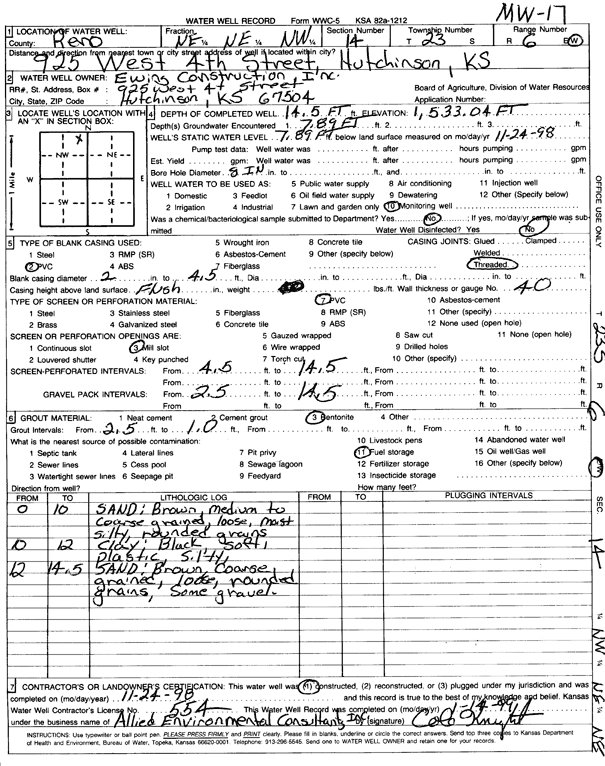 WATER WELL RECORD Form WWC-5 KSA 82a-1212 MW-17
1 LOCATION OF WATER WELL: Fraction Section Number Township Number Range Number
County: Reno NE ¼ NE ¼ NW ¼ 14 T 23 S R 6 E/W
Distance and direction from nearest town or city street address of well if located within city?
925 West 4th Street, Hutchinson, KS
2 WATER WELL OWNER: Ewing Construction Inc.
RR#, St. Address, Box #: 925 West 4th Street Board of Agriculture, Division of Water Resources
City, State, ZIP Code: Hutchinson, KS 67504 Application Number:
3 LOCATE WELL'S LOCATION WITH AN "X" IN SECTION BOX:
N
X
NW NE
W E
SW SE
S
1 Mile
4 DEPTH OF COMPLETED WELL 14.5 FT ELEVATION: 1,533.04 FT
Depth(s) Groundwater Encountered 1. 7.89 FT ft. 2. ft. 3. ft.
WELL'S STATIC WATER LEVEL 7.89 FT ft. below land surface measured on mo/day/yr 11-24-98
Pump test data: Well water was ft. after hours pumping gpm
Est. Yield gpm: Well water was ft. after hours pumping gpm
Bore Hole Diameter 8 IN. in. to ft., and in. to ft.
WELL WATER TO BE USED AS: 5 Public water supply 8 Air conditioning 11 Injection well
1 Domestic 3 Feedlot 6 Oil field water supply 9 Dewatering 12 Other (Specify below)
2 Irrigation 4 Industrial 7 Lawn and garden only 10 Monitoring well
Was a chemical/bacteriological sample submitted to Department? Yes No ; If yes, mo/day/yr sample was submitted Water Well Disinfected? Yes No
5 TYPE OF BLANK CASING USED: 5 Wrought iron 8 Concrete tile CASING JOINTS: Glued Clamped
1 Steel 3 RMP (SR) 6 Asbestos-Cement 9 Other (specify below) Welded
2 PVC 4 ABS 7 Fiberglass Threaded
Blank casing diameter 2 in. to 4.5 ft., Dia in. to ft., Dia in. to ft.
Casing height above land surface Flush in., weight lbs./ft. Wall thickness or gauge No. 40
TYPE OF SCREEN OR PERFORATION MATERIAL: 7 PVC 10 Asbestos-cement
1 Steel 3 Stainless steel 5 Fiberglass 8 RMP (SR) 11 Other (specify)
2 Brass 4 Galvanized steel 6 Concrete tile 9 ABS 12 None used (open hole)
SCREEN OR PERFORATION OPENINGS ARE: 5 Gauzed wrapped 8 Saw cut 11 None (open hole)
1 Continuous slot 3 Mill slot 6 Wire wrapped 9 Drilled holes
2 Louvered shutter 4 Key punched 7 Torch cut 10 Other (specify)
SCREEN-PERFORATED INTERVALS: From 4.5 ft. to 14.5 ft., From ft. to ft.
From ft. to ft., From ft. to ft.
GRAVEL PACK INTERVALS: From 2.5 ft. to 14.5 ft., From ft. to ft.
From ft. to ft., From ft. to ft.
6 GROUT MATERIAL: 1 Neat cement 2 Cement grout 3 Bentonite 4 Other
Grout Intervals: From 2.5 ft. to 1.0 ft., From ft. to ft., From ft. to ft.
What is the nearest source of possible contamination: 10 Livestock pens 14 Abandoned water well
1 Septic tank 4 Lateral lines 7 Pit privy 11 Fuel storage 15 Oil well/Gas well
2 Sewer lines 5 Cess pool 8 Sewage lagoon 12 Fertilizer storage 16 Other (specify below)
3 Watertight sewer lines 6 Seepage pit 9 Feedyard 13 Insecticide storage
Direction from well? How many feet?
FROM TO LITHOLOGIC LOG FROM TO PLUGGING INTERVALS
0 10 SAND: Brown, medium to
Coarse grained, loose, moist
silty, rounded grains
10 12 Clay: Black Soft,
plastic, silty,
12 14.5 SAND: Brown, Coarse
grained, loose, rounded
grains, Some gravel.
7 CONTRACTOR'S OR LANDOWNER'S CERTIFICATION: This water well was (1) constructed, (2) reconstructed, or (3) plugged under my jurisdiction and was
completed on (mo/day/year) 11-24-98 and this record is true to the best of my knowledge and belief. Kansas
Water Well Contractor's License No. 554 This Water Well Record was completed on (mo/day/yr) 1-14-99
under the business name of Allied Environmental Consultants Inc by (signature)
INSTRUCTIONS: Use typewriter or ball point pen. PLEASE PRESS FIRMLY and PRINT clearly. Please fill in blanks, underline or circle the correct answers. Send top three copies to Kansas Department
of Health and Environment, Bureau of Water, Topeka, Kansas 66620-0001. Telephone: 913-296-5545. Send one to WATER WELL OWNER and retain one for your records.
OFFICE USE ONLY
T 23S
R 6
E/W
SEC. 14
NW ¼ NE ¼ NE ¼